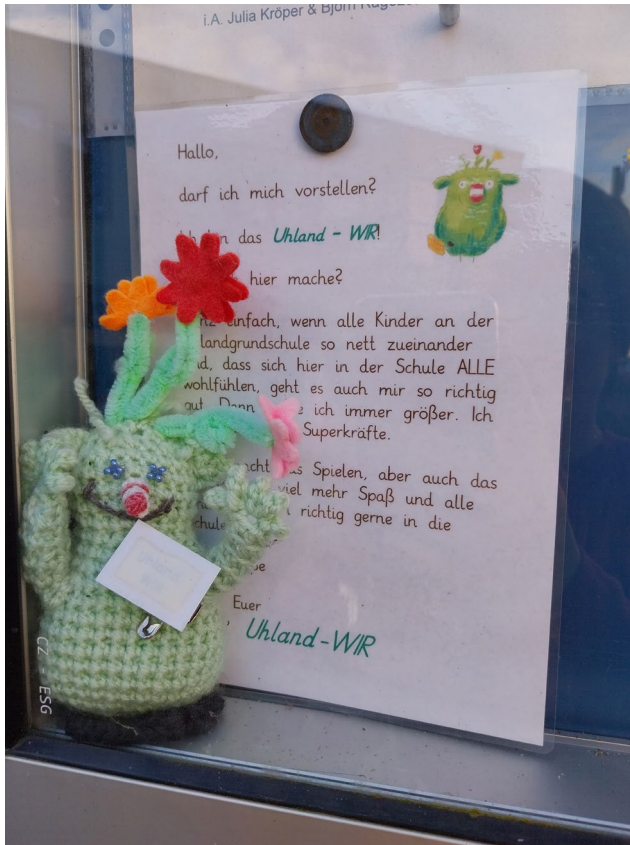 i.A. Julia Kröper & Björn
Hallo,
darf ich mich vorstellen?
das Uhland - WIR!
hier mache?
einfach, wenn alle Kinder an der
landgrundschule so nett zueinander
dass sich hier in der Schule ALLE
wohlfühlen, geht es auch mir so richtig
gut. Denn ich immer größer. Ich
Superkräfte.
Spielen, aber auch das
viel mehr Spaß und alle
richtig gerne in die
Euer
Uhland-WIR
CZ - ESG